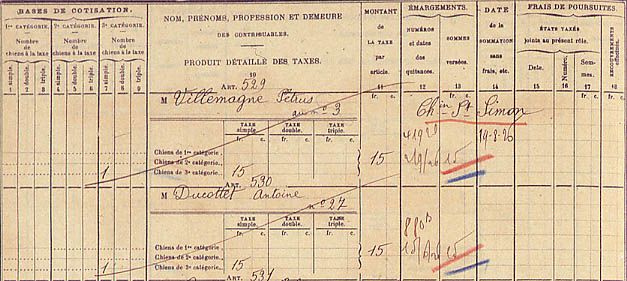 BASES DE COTISATION.
1re CATÉGORIE. 2e CATÉGORIE. 3e CATÉGORIE.
Nombre de chiens à la taxe Nombre de chiens à la taxe Nombre de chiens à la taxe
simple. double. triple. simple. double. triple. simple. double. triple.
1 2 3 4 5 6 7 8 9
NOM, PRÉNOMS, PROFESSION ET DEMEURE
DES CONTRIBUABLES.
PRODUIT DÉTAILLÉ DES TAXES.
10
MONTANT
DE
LA TAXE
par
article.
11
ÉMARGEMENTS.
NUMÉROS
et dates
des
quittances.
12
SOMMES
versées.
13
DATE
de la
SOMMATION
sans
frais, etc.
14
FRAIS DE POURSUITES.
ÉTATS TAXÉS
joints au présent rôle.
Date. Numéro. Sommes.
15 16 17
RECOUVREMENTS
effectués.
18
fr. c. fr. c. fr. c. fr. c.
ART. 529
M Villemagne Pétrus
n° 3
Chin St Simon
TAXE simple. TAXE double. TAXE triple.
fr. c. fr. c. fr. c.
14-8-26
Chiens de 1re catégorie.
Chiens de 2e catégorie..
Chiens de 3e catégorie..
1 15 } 15 15
ART. 530
M Ducottet Antoine
n° 27
TAXE simple. TAXE double. TAXE triple.
fr. c. fr. c. fr. c.
Chiens de 1re catégorie.
Chiens de 2e catégorie..
Chiens de 3e catégorie..
1 15 } 15 15
ART. 531